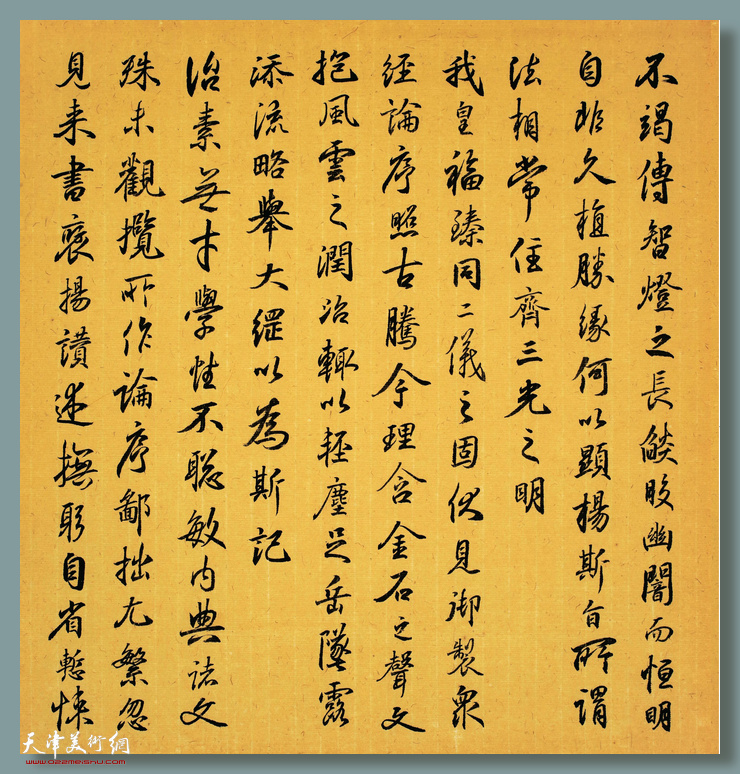 不竭傳智燈之長焰皎幽闇而恒明
自非久植勝緣何以顯楊斯旨所謂
法相常住齊三光之明
我皇福臻同二儀之固伏見御製眾
經論序照古騰今理含金石之聲文
抱風雲之潤治輒以輕塵足岳墜露
添流略舉大綱以為斯記
治素無才學性不聰敏內典諸文
殊未觀攬所作論序鄙拙尤繁忽
見來書褒揚讚述撫躬自省慙悚
天津美術網
www.022meishu.com